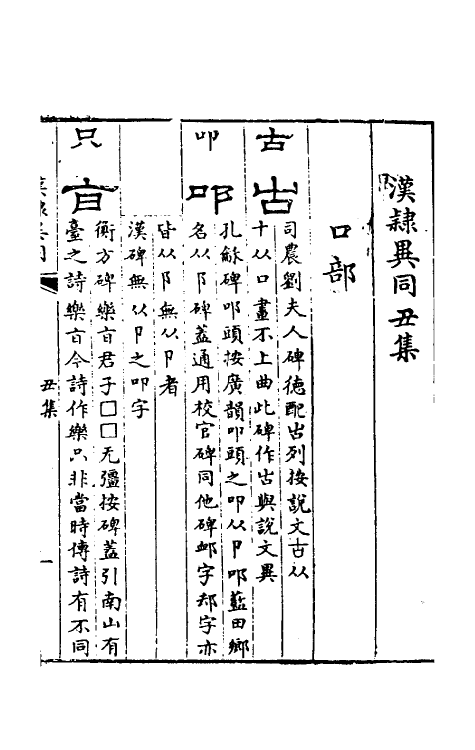 漢隸異同丑集
口部
古
古
司農劉夫人碑德配古列按說文古从
十从口畫不上曲此碑作古與說文異
叩
叩
孔龢碑叩頭按廣韻叩頭之叩从卩叩藍田鄉
名从阝碑蓋通用校官碑同他碑邺字邦字亦
皆从阝無从卩者
漢碑無从卩之叩字
只
旨
衡方碑樂旨君子□□无彊按碑蓋引南山有
臺之詩樂旨今詩作樂只非當時傳詩有不同
漢隸異同
丑集
一